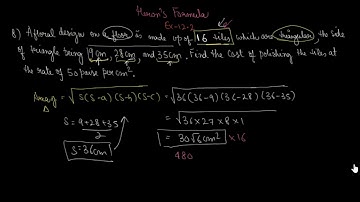 Heron's Formula
Ex-12.2
8) A floral design on a floor is made up of 16 tiles which are triangular, the side
of triangle being 9cm, 28cm and 35cm. Find the cost of polishing the tiles at
the rate of 50 paise per cm².
Area Δ = √S(S-a)(S-b)(S-c) = √36(36-9)(36-28)(36-35)
S = 9+28+35
2
= √36×27×8×1
S=36cm
= 30√6cm² ×16
480